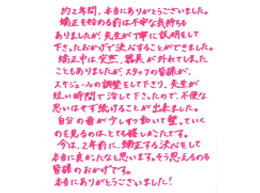 約2年間、本当にありがとうございました。
矯正を始める前は不安な気持ちも
ありましたが、先生が丁寧に説明をして
下さったおかげで決心することができました。
矯正中は突然、器具が外れてしまった
こともありましたが、スタッフの皆様が、
スケジュールの調整をして下さり、先生が
短い時間で治して下さったので、不便な
思いはせず続けることが出来ました。
自分の歯が少しずつ動いて整っていく
のを見るのは、とても嬉しかったです。
今は、2年前に、矯正する決心をして
本当に良かったなと思います。そう思えるのも
皆様のおかげです。
本当にありがとうございました!